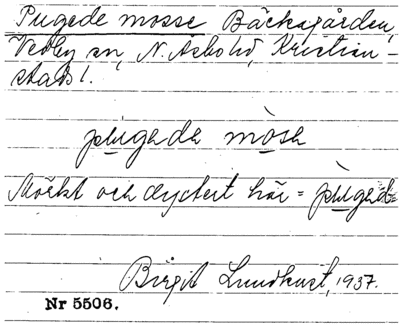 Pugede mosse Bäcksgården,
Vedby sn, N. Åsbo hd, Kristian-
stads l.
pugede mosa
Mörkt och dystert här = puged=
Birgit Lundkvist, 1937.
Nr 5506.